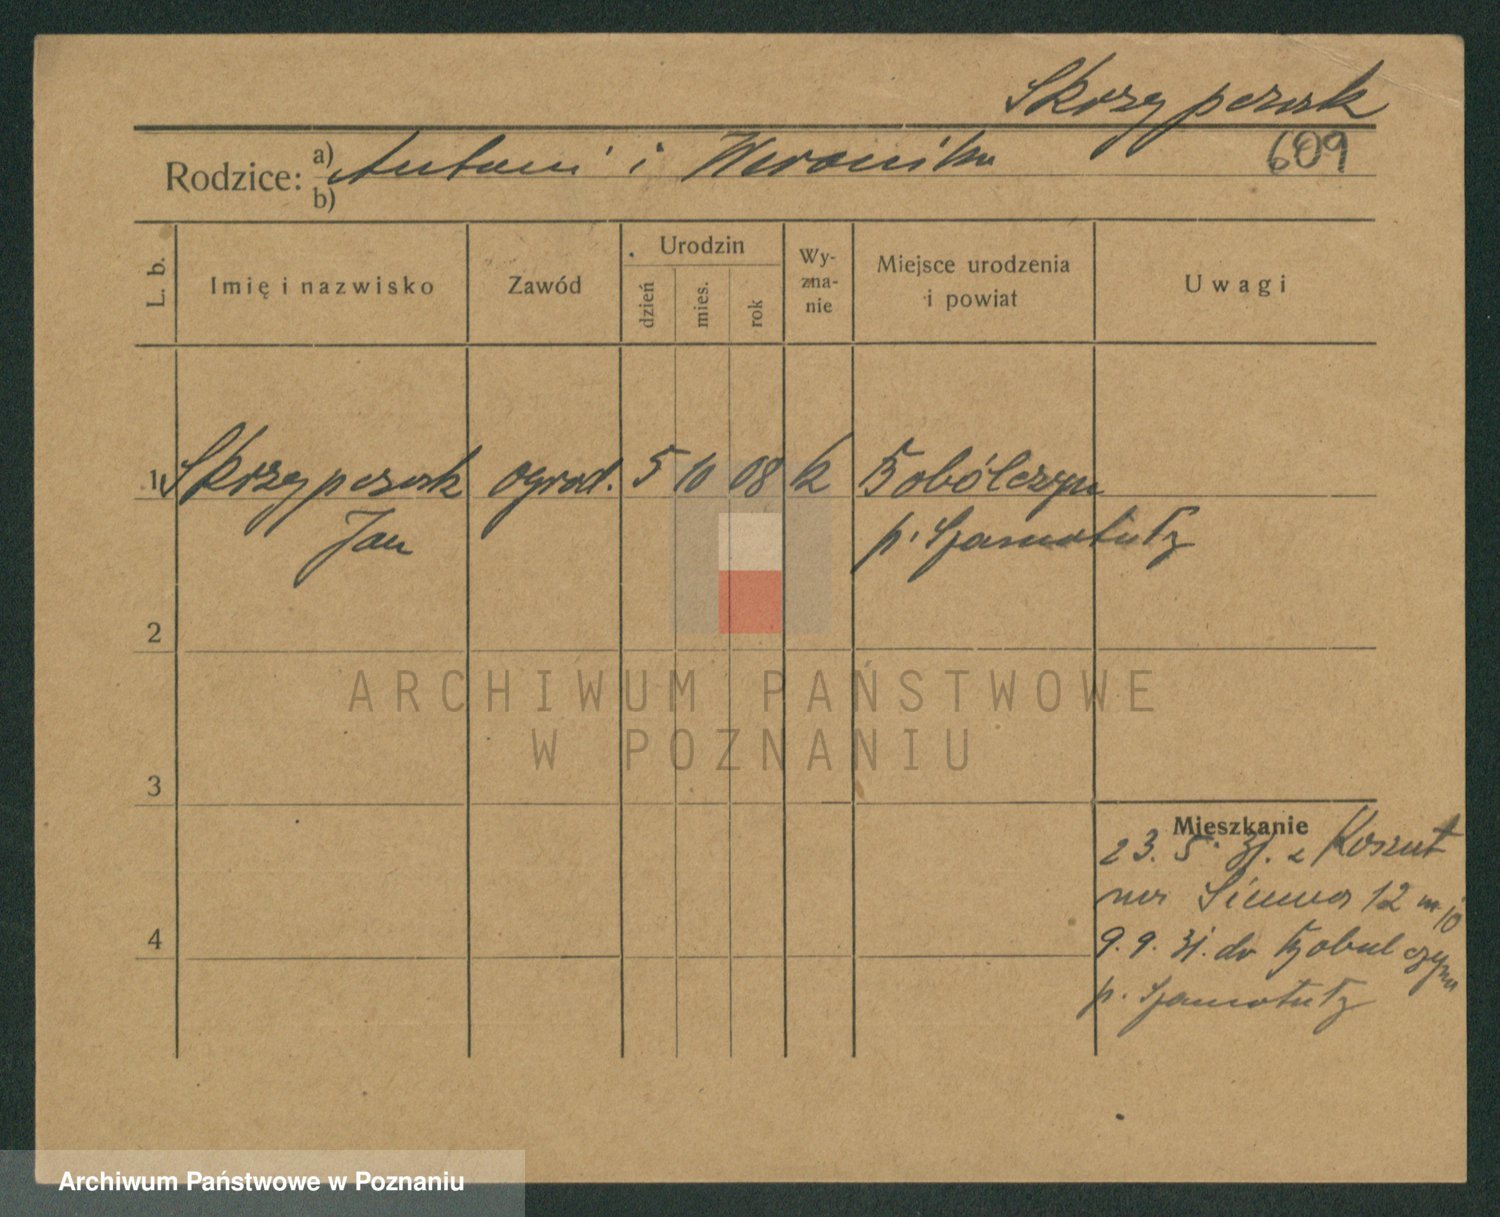 Skrzypczak
609
Rodzice: a) Antoni i Weronika
b)
L. b.
Imię i nazwisko
Zawód
Urodzin
dzień
mies.
rok
Wy-
zna-
nie
Miejsce urodzenia
i powiat
Uwagi
1 Skrzypczak ogrod. 5 10 08 k Bobólczyn
Jan p. Szamotuły
2
ARCHIWUM PAŃSTWOWE
W POZNANIU
3
Mieszkanie
23. 5. 31. z
12 m 10
4
9. 9. 31. do Bobulczyna
p. Szamotuły
Archiwum Państwowe w Poznaniu